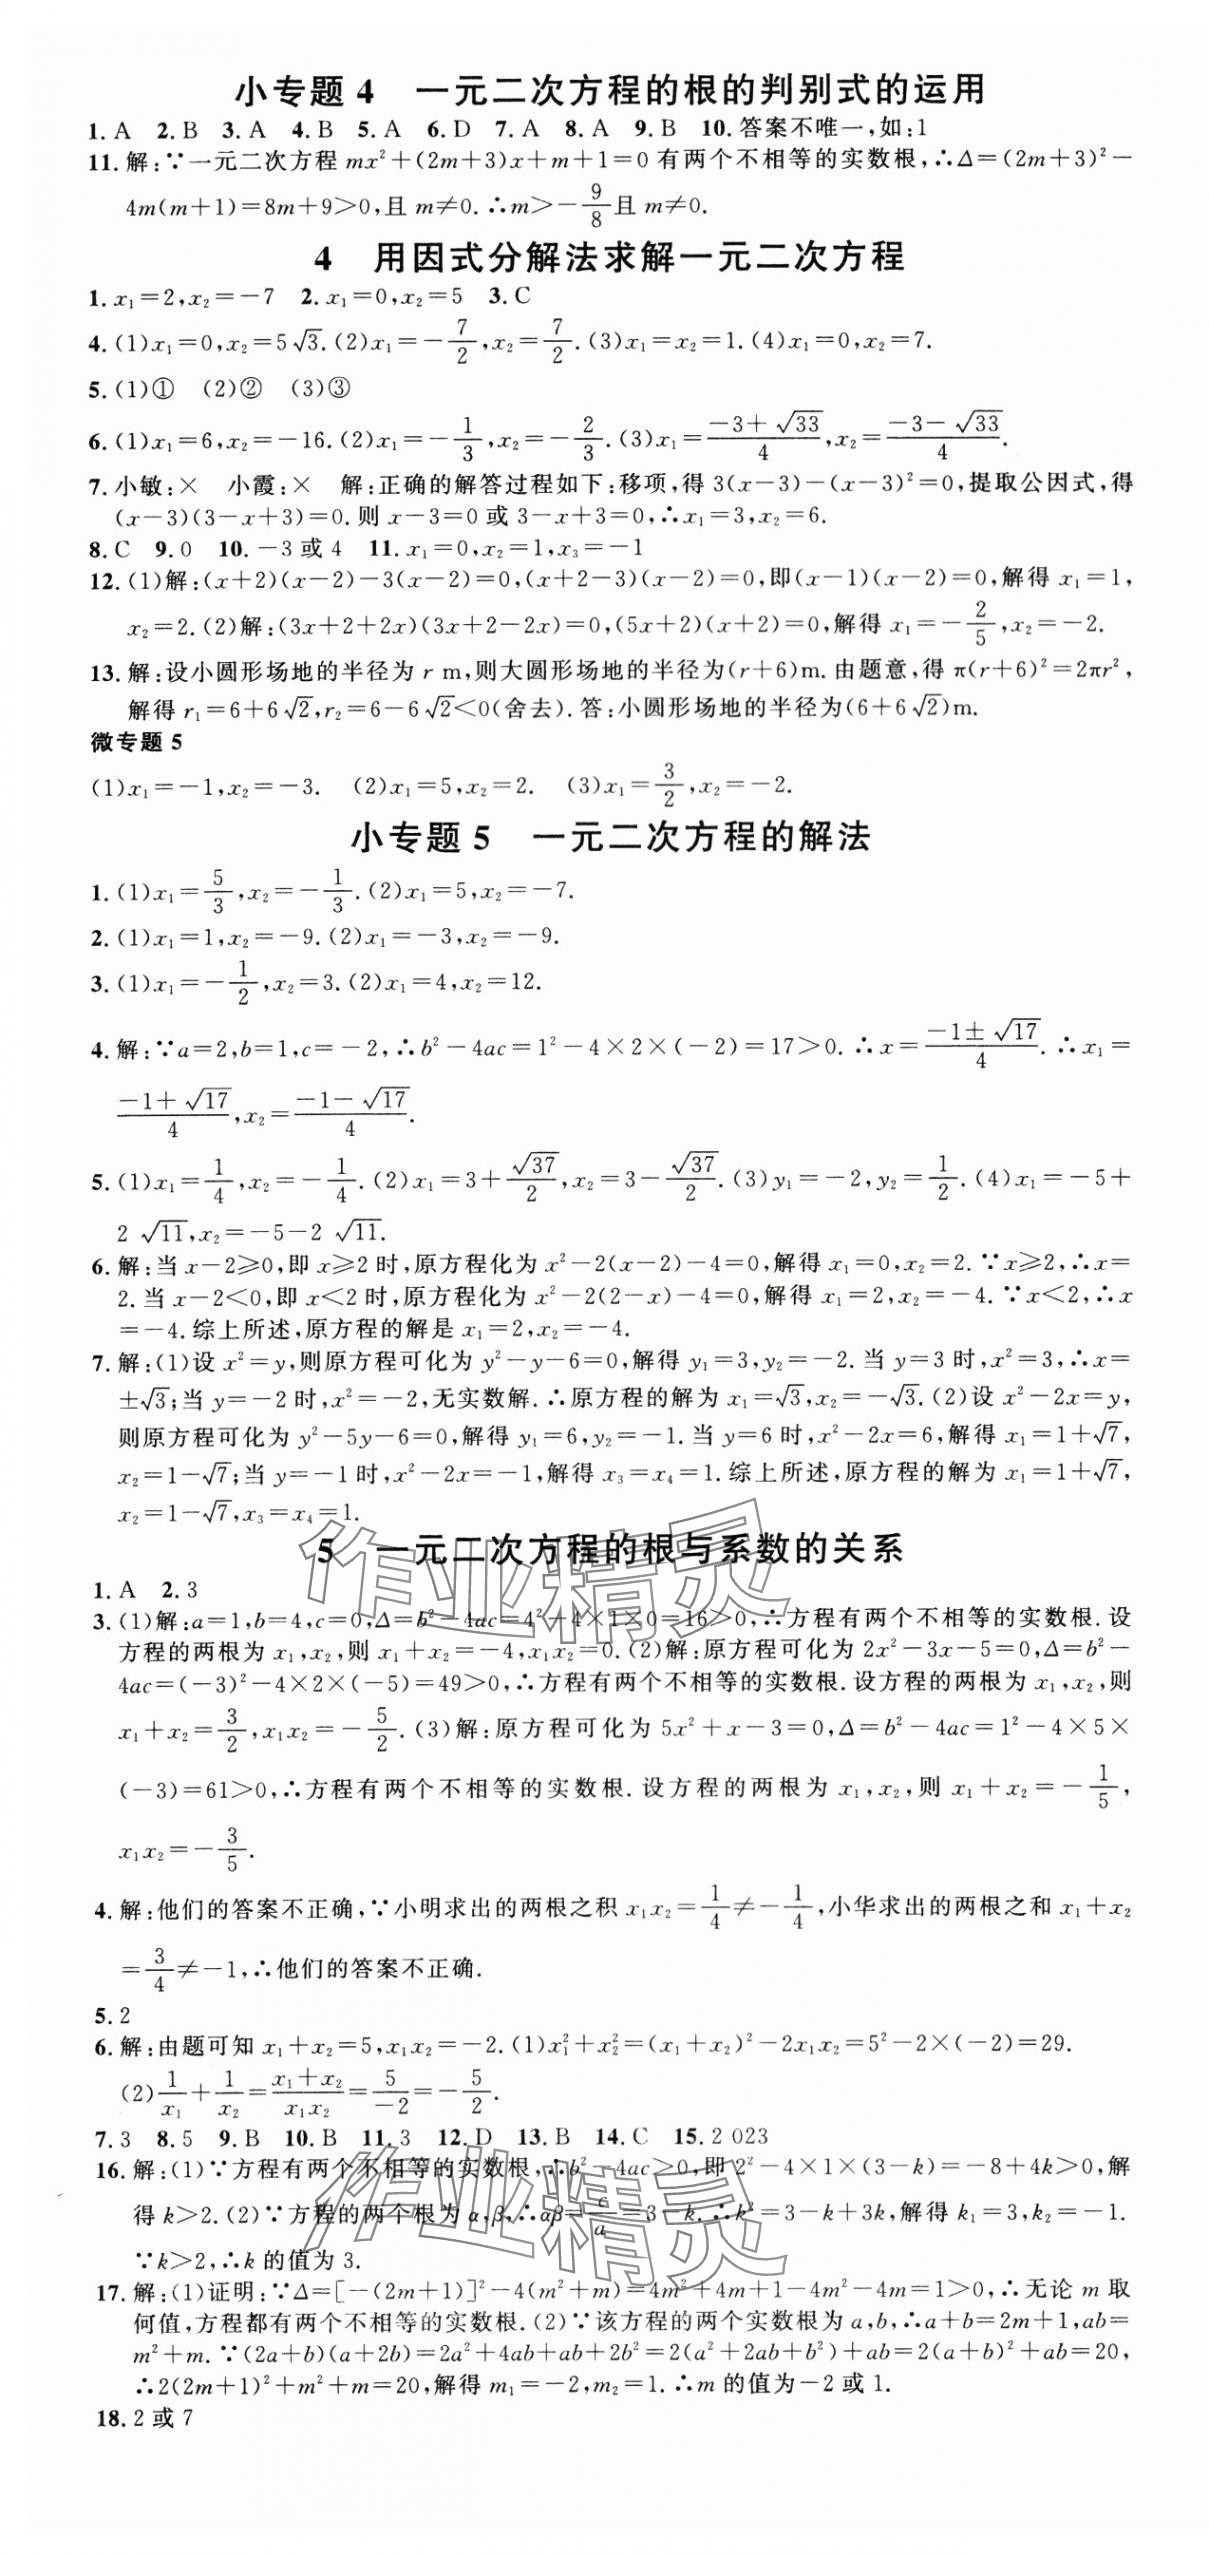 小专题 4　一元二次方程的根的判别式的运用
1. A　2. B　3. A　4. B　5. A　6. D　7. A　8. A　9. B　10. 答案不唯一,如:1
11. 解:∵一元二次方程 mx²+(2m+3)x+m+1=0 有两个不相等的实数根,∴Δ=(2m+3)²-
4m(m+1)=8m+9>0,且 m≠0. ∴m>-9/8且 m≠0.
4　用因式分解法求解一元二次方程
1. x₁=2,x₂=-7　2. x₁=0,x₂=5　3. C
4. (1)x₁=0,x₂=5√3. (2)x₁=-7/2,x₂=7/2. (3)x₁=x₂=1. (4)x₁=0,x₂=7.
5. (1)①　(2)②　(3)③
6. (1)x₁=6,x₂=-16. (2)x₁=-1/3,x₂=-2/3. (3)x₁=(-3+√33)/4,x₂=(-3-√33)/4.
7. 小敏:×　小霞:×　解:正确的解答过程如下:移项,得 3(x-3)-(x-3)²=0,提取公因式,得
(x-3)(3-x+3)=0. 则 x-3=0 或 3-x+3=0,∴x₁=3,x₂=6.
8. C　9. 0　10. -3 或 4　11. x₁=0,x₂=1,x₃=-1
12. (1)解:(x+2)(x-2)-3(x-2)=0,(x+2-3)(x-2)=0,即(x-1)(x-2)=0,解得 x₁=1,
x₂=2. (2)解:(3x+2+2x)(3x+2-2x)=0,(5x+2)(x+2)=0,解得 x₁=-2/5,x₂=-2.
13. 解:设小圆形场地的半径为 r m,则大圆形场地的半径为(r+6)m. 由题意,得 π(r+6)²=2πr²,
解得 r₁=6+6√2,r₂=6-6√2<0(舍去). 答:小圆形场地的半径为(6+6√2)m.
微专题 5
(1)x₁=-1,x₂=-3.　(2)x₁=5,x₂=2.　(3)x₁=3/2,x₂=-2.
小专题 5　一元二次方程的解法
1. (1)x₁=5/3,x₂=-1/3. (2)x₁=5,x₂=-7.
2. (1)x₁=1,x₂=-9. (2)x₁=-3,x₂=-9.
3. (1)x₁=-1/2,x₂=3. (2)x₁=4,x₂=12.
4. 解:∵a=2,b=1,c=-2,∴b²-4ac=1²-4×2×(-2)=17>0. ∴x=(-1±√17)/4. ∴x₁=
(-1+√17)/4,x₂=(-1-√17)/4.
5. (1)x₁=1/4,x₂=-1/4. (2)x₁=3+√37/2,x₂=3-√37/2. (3)y₁=-2,y₂=1/2. (4)x₁=-5+
2√11,x₂=-5-2√11.
6. 解:当 x-2≥0,即 x≥2 时,原方程化为 x²-2(x-2)-4=0,解得 x₁=0,x₂=2. ∵x≥2,∴x=
2. 当 x-2<0,即 x<2 时,原方程化为 x²-2(2-x)-4=0,解得 x₁=2,x₂=-4. ∵x<2,∴x
=-4. 综上所述,原方程的解是 x₁=2,x₂=-4.
7. 解:(1)设 x²=y,则原方程可化为 y²-y-6=0,解得 y₁=3,y₂=-2. 当 y=3 时,x²=3,∴x=
±√3;当 y=-2 时,x²=-2,无实数解. ∴原方程的解为 x₁=√3,x₂=-√3. (2)设 x²-2x=y,
则原方程可化为 y²-5y-6=0,解得 y₁=6,y₂=-1. 当 y=6 时,x²-2x=6,解得 x₁=1+√7,
x₂=1-√7;当 y=-1 时,x²-2x=-1,解得 x₃=x₄=1. 综上所述,原方程的解为 x₁=1+√7,
x₂=1-√7,x₃=x₄=1.
5　一元二次方程的根与系数的关系
1. A　2. 3
3. (1)解:a=1,b=4,c=0,Δ=b²-4ac=4²-4×1×0=16>0,∴方程有两个不相等的实数根. 设
方程的两根为 x₁,x₂,则 x₁+x₂=-4,x₁x₂=0. (2)解:原方程可化为 2x²-3x-5=0,Δ=b²-
4ac=(-3)²-4×2×(-5)=49>0,∴方程有两个不相等的实数根. 设方程的两根为 x₁,x₂,则
x₁+x₂=3/2,x₁x₂=-5/2. (3)解:原方程可化为 5x²+x-3=0,Δ=b²-4ac=1²-4×5×
(-3)=61>0,∴方程有两个不相等的实数根. 设方程的两根为 x₁,x₂,则 x₁+x₂=-1/5,
x₁x₂=-3/5.
4. 解:他们的答案不正确,∵小明求出的两根之积 x₁x₂=1/4≠-1/4,小华求出的两根之和 x₁+x₂
=3/4≠-1,∴他们的答案不正确.
5. 2
6. 解:由题可知 x₁+x₂=5,x₁x₂=-2. (1)x₁²+x₂²=(x₁+x₂)²-2x₁x₂=5²-2×(-2)=29.
(2)1/x₁+1/x₂=(x₁+x₂)/(x₁x₂)=5/(-2)=-5/2.
7. 3　8. 5　9. B　10. B　11. 3　12. D　13. B　14. C　15. 2 023
16. 解:(1)∵方程有两个不相等的实数根,∴b²-4ac>0,即 2²-4×1×(3-k)=-8+4k>0,解
得 k>2. (2)∵方程的两个根为 α,β,∴αβ=c/a=3-k. ∴k²=3-k+3k,解得 k₁=3,k₂=-1.
∵k>2,∴k 的值为 3.
17. 解:(1)证明:∵Δ=[-(2m+1)]²-4(m²+m)=4m²+4m+1-4m²-4m=1>0,∴无论 m 取
何值,方程都有两个不相等的实数根. (2)∵该方程的两个实数根为 a,b,∴a+b=2m+1,ab=
m²+m. ∵(2a+b)(a+2b)=2a²+4ab+ab+2b²=2(a²+2ab+b²)+ab=2(a+b)²+ab=20,
∴2(2m+1)²+m²+m=20,解得 m₁=-2,m₂=1. ∴m 的值为-2 或 1.
18. 2 或 7
作业精灵
作业精灵